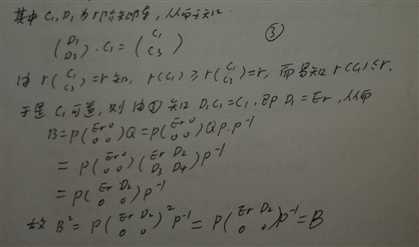 其中 C₁, D₁ 为 r 阶方阵, 从而
(D₁ D₃)·C₁ = (C₁ C₃) ③
由 r(C₁ C₃) = r 知, r(C₁) ≥ r(C₁ C₃) = r, 而易知 r(C₁) ≤ r.
于是 C₁ 可逆, 则由③知 D₁C₁ = C₁, 即 D₁ = Er, 从而
B = P(Er 0 0 0)Q = P(Er 0 0 0)QP·P⁻¹
= P(Er 0 0 0)(Er D₂ D₃ D₄)P⁻¹
= P(Er D₂ 0 0)P⁻¹
故 B² = P(Er D₂ 0 0)²P⁻¹ = P(Er D₂ 0 0)P⁻¹ = B